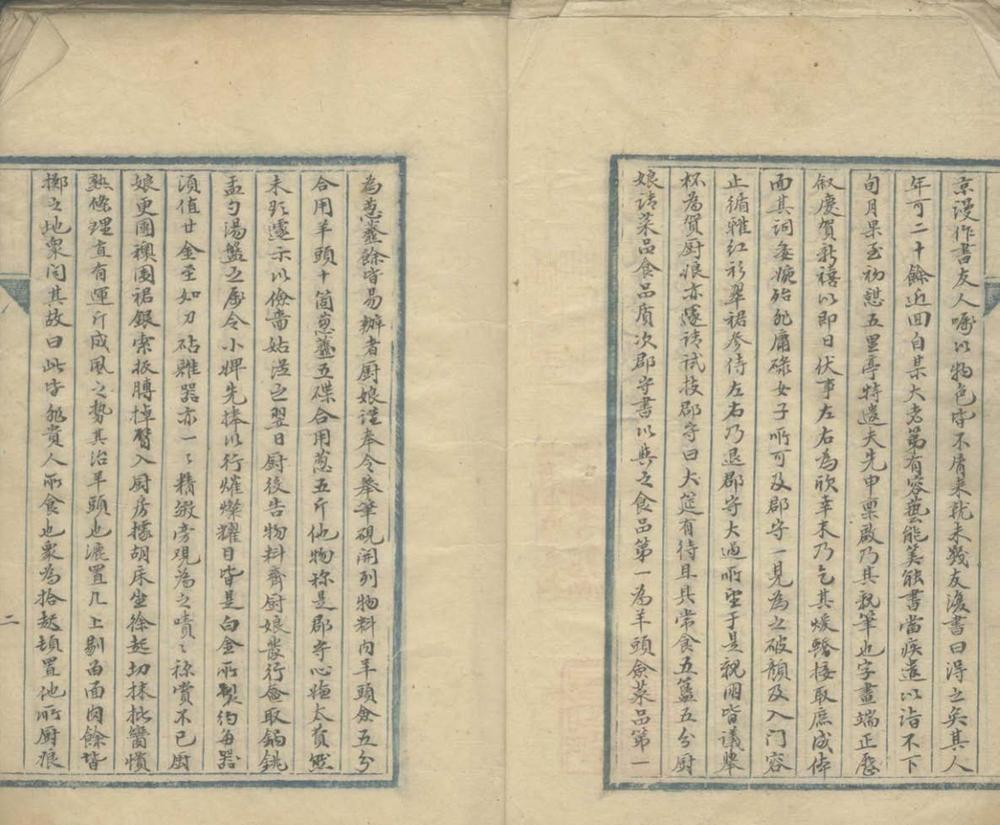 京謾作書友人囑以物色皆不屑来就未幾友復書曰得之矣其人
年可二十餘近回自某大老第有容藝能筭能書當疾遣以詣不下
旬月果至初憇五里亭特遣夫先申禀啟乃其親筆也字畫端正歷
叙慶賀新禧以即日伏事左右為欣幸末乃乞其煖轎接取庶成体
面其詞委婉殆非庸碌女子所可及郡守一見為之破顏及入門容
止循雅紅衫翠裙参侍左右乃退郡守大過所望于是親朋皆議舉
杯為賀厨娘亦遂請試技郡守曰大筵有待且具常食五簋五分厨
娘請菜品食品质次郡守書以與之食品第一為羊頭僉菜品第一
為葱虀餘皆易辦者厨娘謹奉令舉筆硯開列物料内羊頭僉五分
合用羊頭十箇葱虀五碟合用葱五斤他物称是郡守心嫌太費然
未欲遽示以儉嗇姑從之翌日厨役告物料齊厨娘發行奩取鍋銚
盂勺湯盤之屬令小婢先捧以行燿燦耀日皆是白金所製約每器
須值廿金至如刀砧雜器亦一〻精緻旁观為之嘖〻称賞不已厨
娘更圍襖圍裙銀索扳膊掉臂入厨房據胡床坐徐起切抹批臠慣
熟條理直有運斤成風之势其治羊頭也漉置几上剔畄面肉餘皆
擲之地衆问其故曰此皆非贵人所食也衆為拾起頓置他所厨娘
二